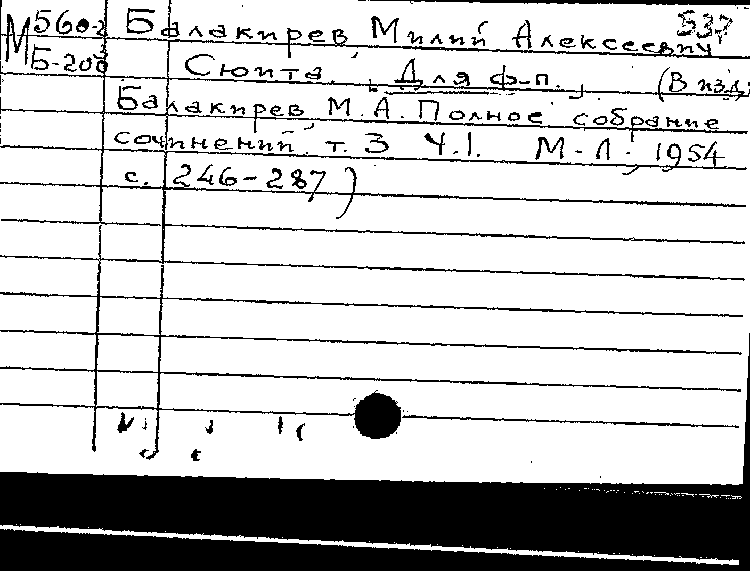 537
М 560-2
Б-200
Балакирев, Милий Алексеевич
Сюита. [Для ф-п.] (В изд:
Балакирев, М.А. Полное собрание
сочинений, т. 3 Ч.1. М-Л., 1954
с. 246-287)